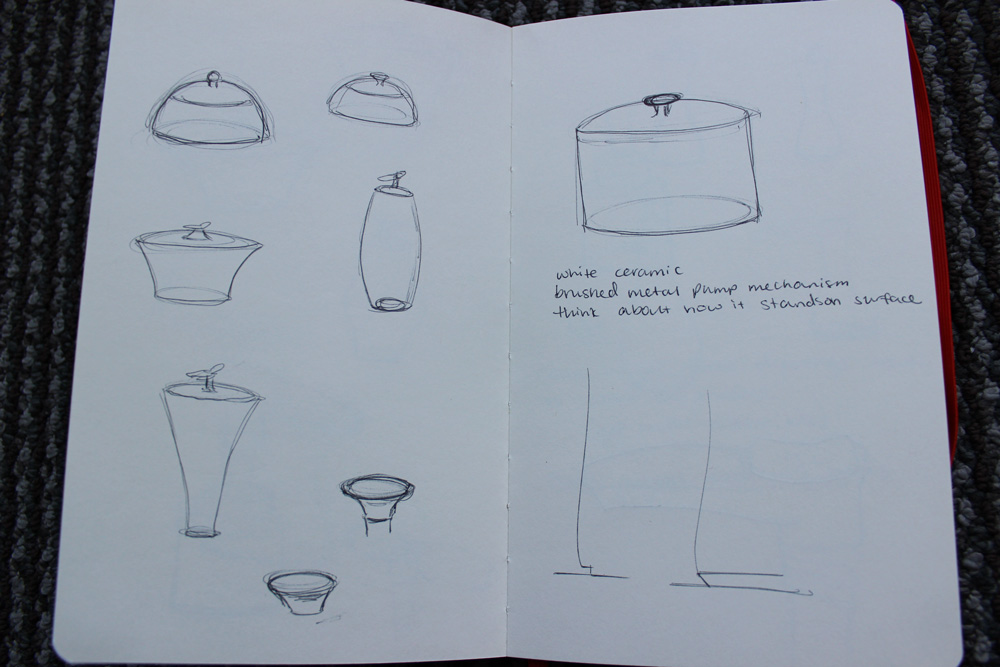 white ceramic
brushed metal pump mechanism
think about how it standson surface